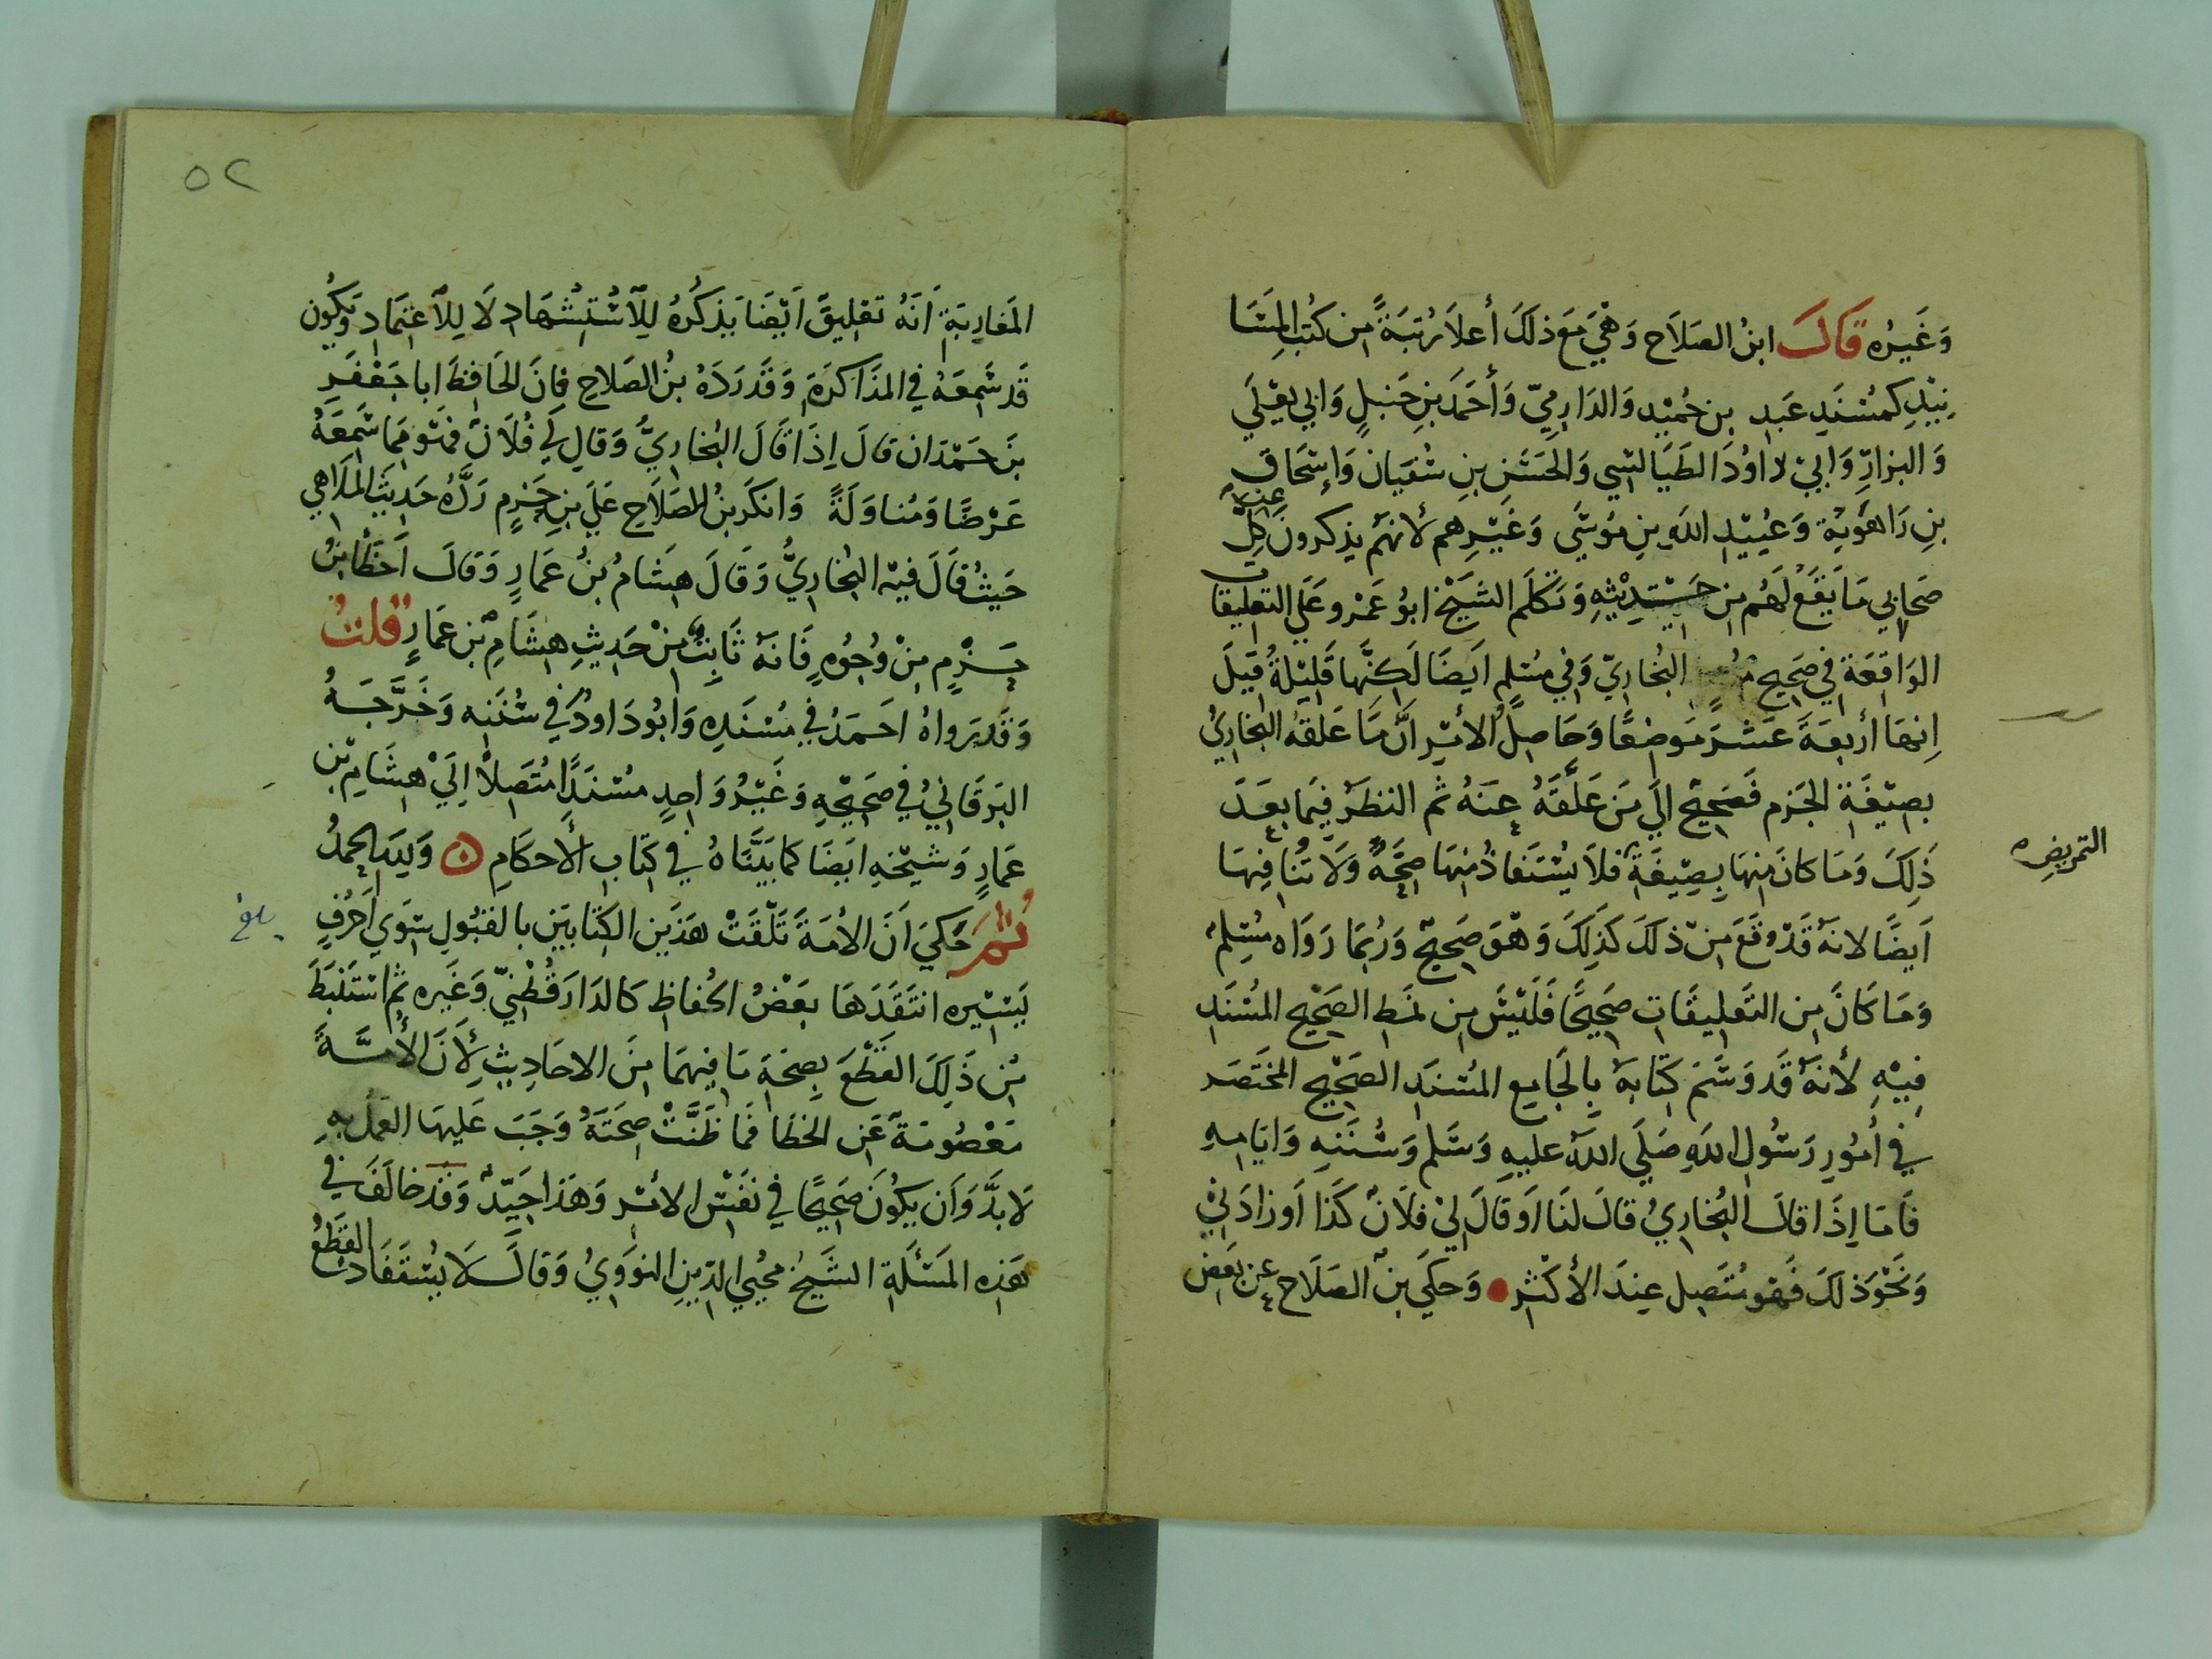 وَغَيرُه قَالَ ابنُ الصَلَاح وَهْيَ مَعَ ذلكَ أعلاَ رُتبَةً من كُتُب المِسَا
نِيْدِ كمُسْنَدِ عَبدِ بن حُمَيْدٍ وَالدَارِمِيّ وَأحمَدَ بنِ حَنبلٍ وَابي يعْلَي
وَالبزارِّ وَابيْ داوُدَ الطَيَالسِي وَالحَسَنِ بنِ سُفيَانَ وَإسْحَاق
بنِ رَاهَوَيْة وَعُبَيْدِ اللهِ بنِ مُوسَي وَغَيْرِهم لأنهم يذكرونَ عن كلِّ
صَحابي مَا يَقَعُ لَهُم من حَديْثِهِ وَتكلَم الشَيخ ابوُ عَمْرو عَلي التعليقات
الوَاقعَة في صَحِيح البُخاريّ وَفي مُسْلم ايَضاَ لَكِنَّها قَليْلَةُ قيلَ
إنها أربعَةَ عَشرَ مَوضعًا وَحَاصِلُ الأمْرِ أنَّ مَا عَلقهُ البُخاريُ
بصيْغَةِ الجَزم فَصَحِيحْ الي مَن عَلَقَهُ عنهُ ثم النظرَ فيمَا بعَدَ
ذَلِكَ وَمَا كانَ منهَا بِصِيْغَةِ فلاَ يُسْتَفادُ مْنهَا صِحَّهٌ وَلاَ تُنَافِيهَا
التمريض ه
اَيضًا لانهَ قدْ وقَعَ مِنْ ذلكَ كَذَلِكَ وَهْوَ صَحِيحْ وَرُبمَا رَوَاه مُسْلِم
وَمَا كَانَ من التَعليقَاتِ صَحِيحًا فَلَيْسَ مِن نمَط الصَحْيحِ المُسْنَدِ
فِيْهِ لأنهَ قَد وَسَمَ كتَابهَ بِالجَامِع المُسْنَدِ الصَحْيحِ المختَصَر
في أمُورِ رَسُولِ اللهِ صَلَي اللهُ عليهِ وَسَلم وَسُنَنِهِ وَايَامِهِ
فَامَا إذَا قالَ البُخارِيُ قالَ لنَا اَو قالَ ليْ فلاَنٌ كَذَا اَو زادَنيْ
وَنَحْوَذلكَ فَهْو مُتَصِل عِندَ الأكثرِ وَحكَي بنُ الصَلاَح عن بَعَض
٥٢
المَغاربَةِ اَنَهُ تعْليقٌ اَيْضًا يَذكُرُهُ لِلاسْتِشْهَادِ لاَ لِلاعتِمَادِ وَيَكُون
قَد سَمِعَهُ في المذَاكَرَةِ وَقَد رَدَهُ بنُ الصَلاحِ فإنَ الحَافِظَ ابا جَعْفَرِ
بنَ حَمْدَان قالَ إذَا قَالَ البُخاريُّ وَقالِ لِي فُلَانٌ فهْو مِمَا سَمِعَهُ
عَرْضًا وَمُناوَلَةً وَانكَرَ بنُ الصَلاَحِ عَلي بنِ حَزمٍ رَدَّهُ حَدِيثَ المَلاَهي
حَيثُ قاَلَ فيْه البُخارِيُّ وَقَالَ هِشَامُ بنُ عَمَارٍ وَقالَ اَخطَأ بنُ
حَزْمٍ مِنْ وُجُوُهٍ فَانهَ ثَابِتٌ مِنْ حَدِيثِ هِشَامِ بنِ عَمَارٍ قلتُ
وَقَد رَواهُ احَمدُ في مُسْنَدِه وَابُودَاودُ في سُنَنِه وَخَرَّجَهُ
البَرقَانيُ في صَحِيْحِهِ وَغَيْرُ وَاحدٍ مسْنَدًا مُتَصِلاً إلَيْ هِشَامِ بن
عَمارٍ وَشَيْخهِ ايَضَا كما بَيَّنَاهُ في كتَاب الأحكَامِ ه وَلِلَهِ الحمدُ
ثمَ حَكيَ اَنَ الأمَةَ تَلَقتْ هَذَينِ الكِتابَيَن بالقبُولِ سِوَي اَحرُفٍ
بلغ
يَسْيره انتَقَدَهَا بعَضُ الحُفاظِ كَالدَارَقُطْنيّ وَغَيره ثم استَنَبطَ
مِن ذَلِكَ القَطْعَ بِصِحَةِ مَا فيهمَا مِنَ الاحَادِيثِ لأَنَ الأمَّةَ
مَعْصُومَةَ عَنِ الخَطَا فَما ظَنَّتْ صِحَتَهُ وَجَبَ عَليهَا العَمَل بِهِ
لاَ بدَّ وَاَن يكُونَ صَحِيحًا في نفَسْ الأمرِ وَهَذَا جَيّدٌ وَقَد خالَفَ في
هَذه المَسْئَلَةِ الشَيخُ مُحْيي الدّينِ النوَوَيُ وَقالَ لاَ يُستفَادُ القَطعُ